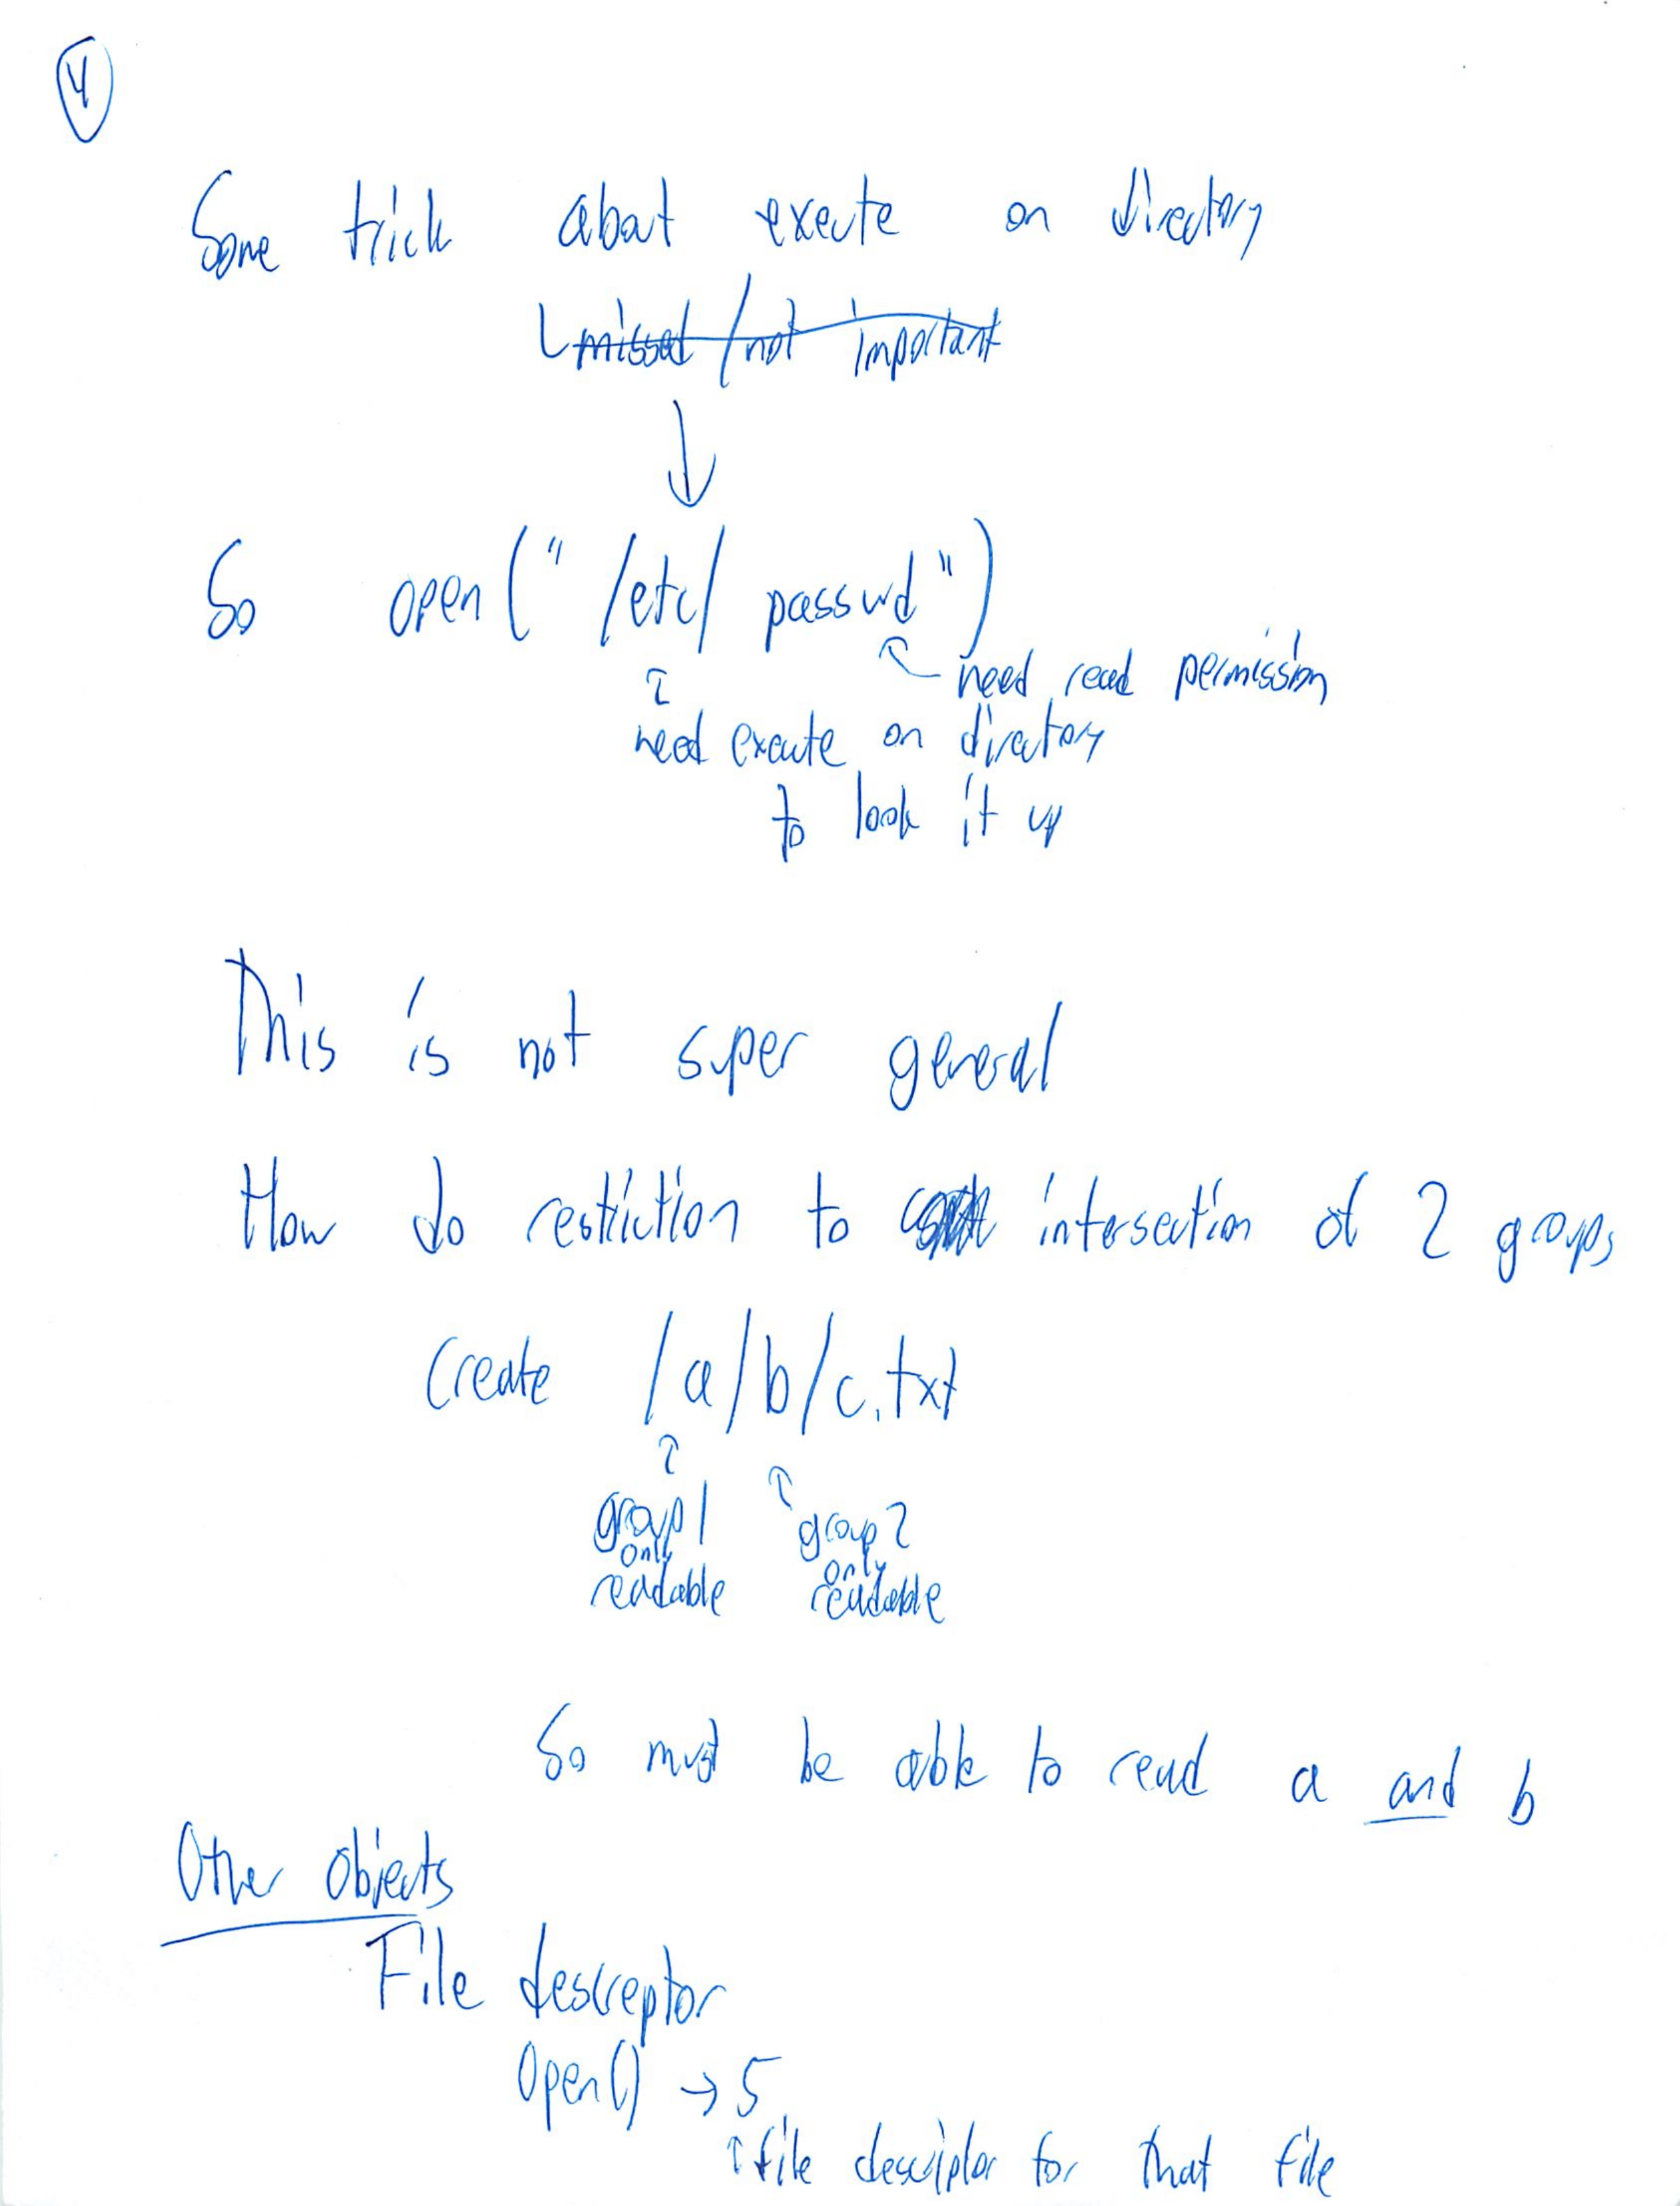 4
Some trick about execute on directory
missed / not important
So open(" /etc/ passwd")
need read permission
need execute on directory
to look it up
This is not super general
How do restriction to intersection of 2 groups
Create /a/b/c.txt
group 1 group 2
only only
readable readable
So must be able to read a and b
Other Objects
File descreptor
Open() → 5
↑ file descriptor for that file